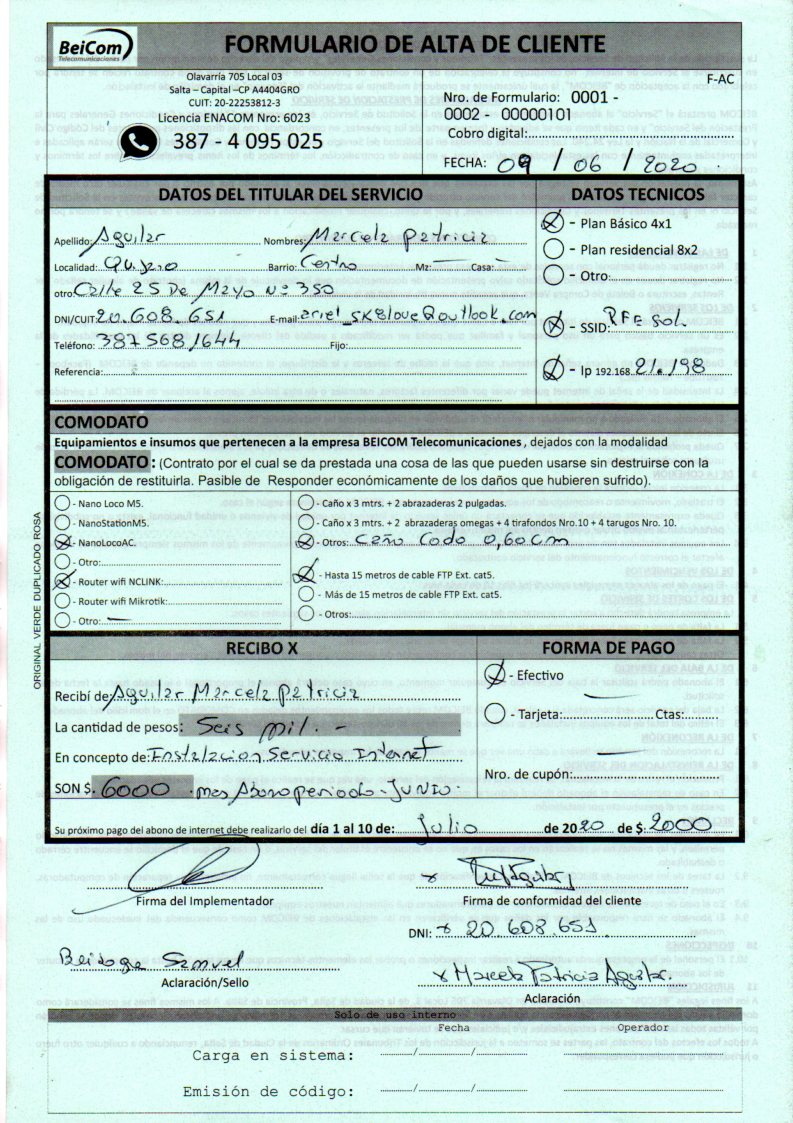 BeiCom
Telecomunicaciones
FORMULARIO DE ALTA DE CLIENTE
Olavarría 705 Local 03
Salta – Capital –CP A4404GRO
CUIT: 20-22253812-3
Licencia ENACOM Nro: 6023
387 - 4 095 025
F-AC
Nro. de Formulario: 0001 -
0002 - 00000101
Cobro digital:
FECHA: 09 / 06 / 2020
DATOS DEL TITULAR DEL SERVICIO
Apellido: Aguilar Nombres: Marcela patricia
Localidad: Barrio: Centro Mz: — Casa: —
otro: Calle 25 De Mayo Nº 350
DNI/CUIT: 20.608.651 E-mail: ariel_sk8love@outlook.com
Teléfono: 387 5681644 Fijo:
Referencia:
DATOS TECNICOS
- Plan Básico 4x1
- Plan residencial 8x2
- Otro:
- SSID: PFE Sol.
- Ip 192.168. 21.198
COMODATO
Equipamientos e insumos que pertenecen a la empresa BEICOM Telecomunicaciones , dejados con la modalidad
COMODATO : (Contrato por el cual se da prestada una cosa de las que pueden usarse sin destruirse con la
obligación de restituirla. Pasible de Responder económicamente de los daños que hubieren sufrido).
- Nano Loco M5.
- NanoStationM5.
- NanoLocoAC.
- Otro:
- Router wifi NCLINK:
- Router wifi Mikrotik:
- Otro: —
- Caño x 3 mtrs. + 2 abrazaderas 2 pulgadas.
- Caño x 3 mtrs. + 2 abrazaderas omegas + 4 tirafondos Nro.10 + 4 tarugos Nro. 10.
- Otros: Caño Codo 0,60cm
- Hasta 15 metros de cable FTP Ext. cat5.
- Más de 15 metros de cable FTP Ext. cat5.
- Otros:
ORIGINAL VERDE DUPLICADO ROSA
RECIBO X
Recibí de: Aguilar Marcela patricia
La cantidad de pesos: Seis mil. -
En concepto de: Instalacion Servicio Internet
SON $. 6000 . mas Abono periodo - JUNIO -
FORMA DE PAGO
- Efectivo
- Tarjeta: Ctas:
Nro. de cupón:
Su próximo pago del abono de internet debe realizarlo del día 1 al 10 de: Julio de 2020 de $: 2000
Firma del Implementador
Firma de conformidad del cliente
DNI: x 20.608.651
Samuel
Aclaración/Sello
x Marcela Patricia Aguilar.
Aclaración
Solo de uso interno
Fecha Operador
Carga en sistema: / /
Emisión de código: / /